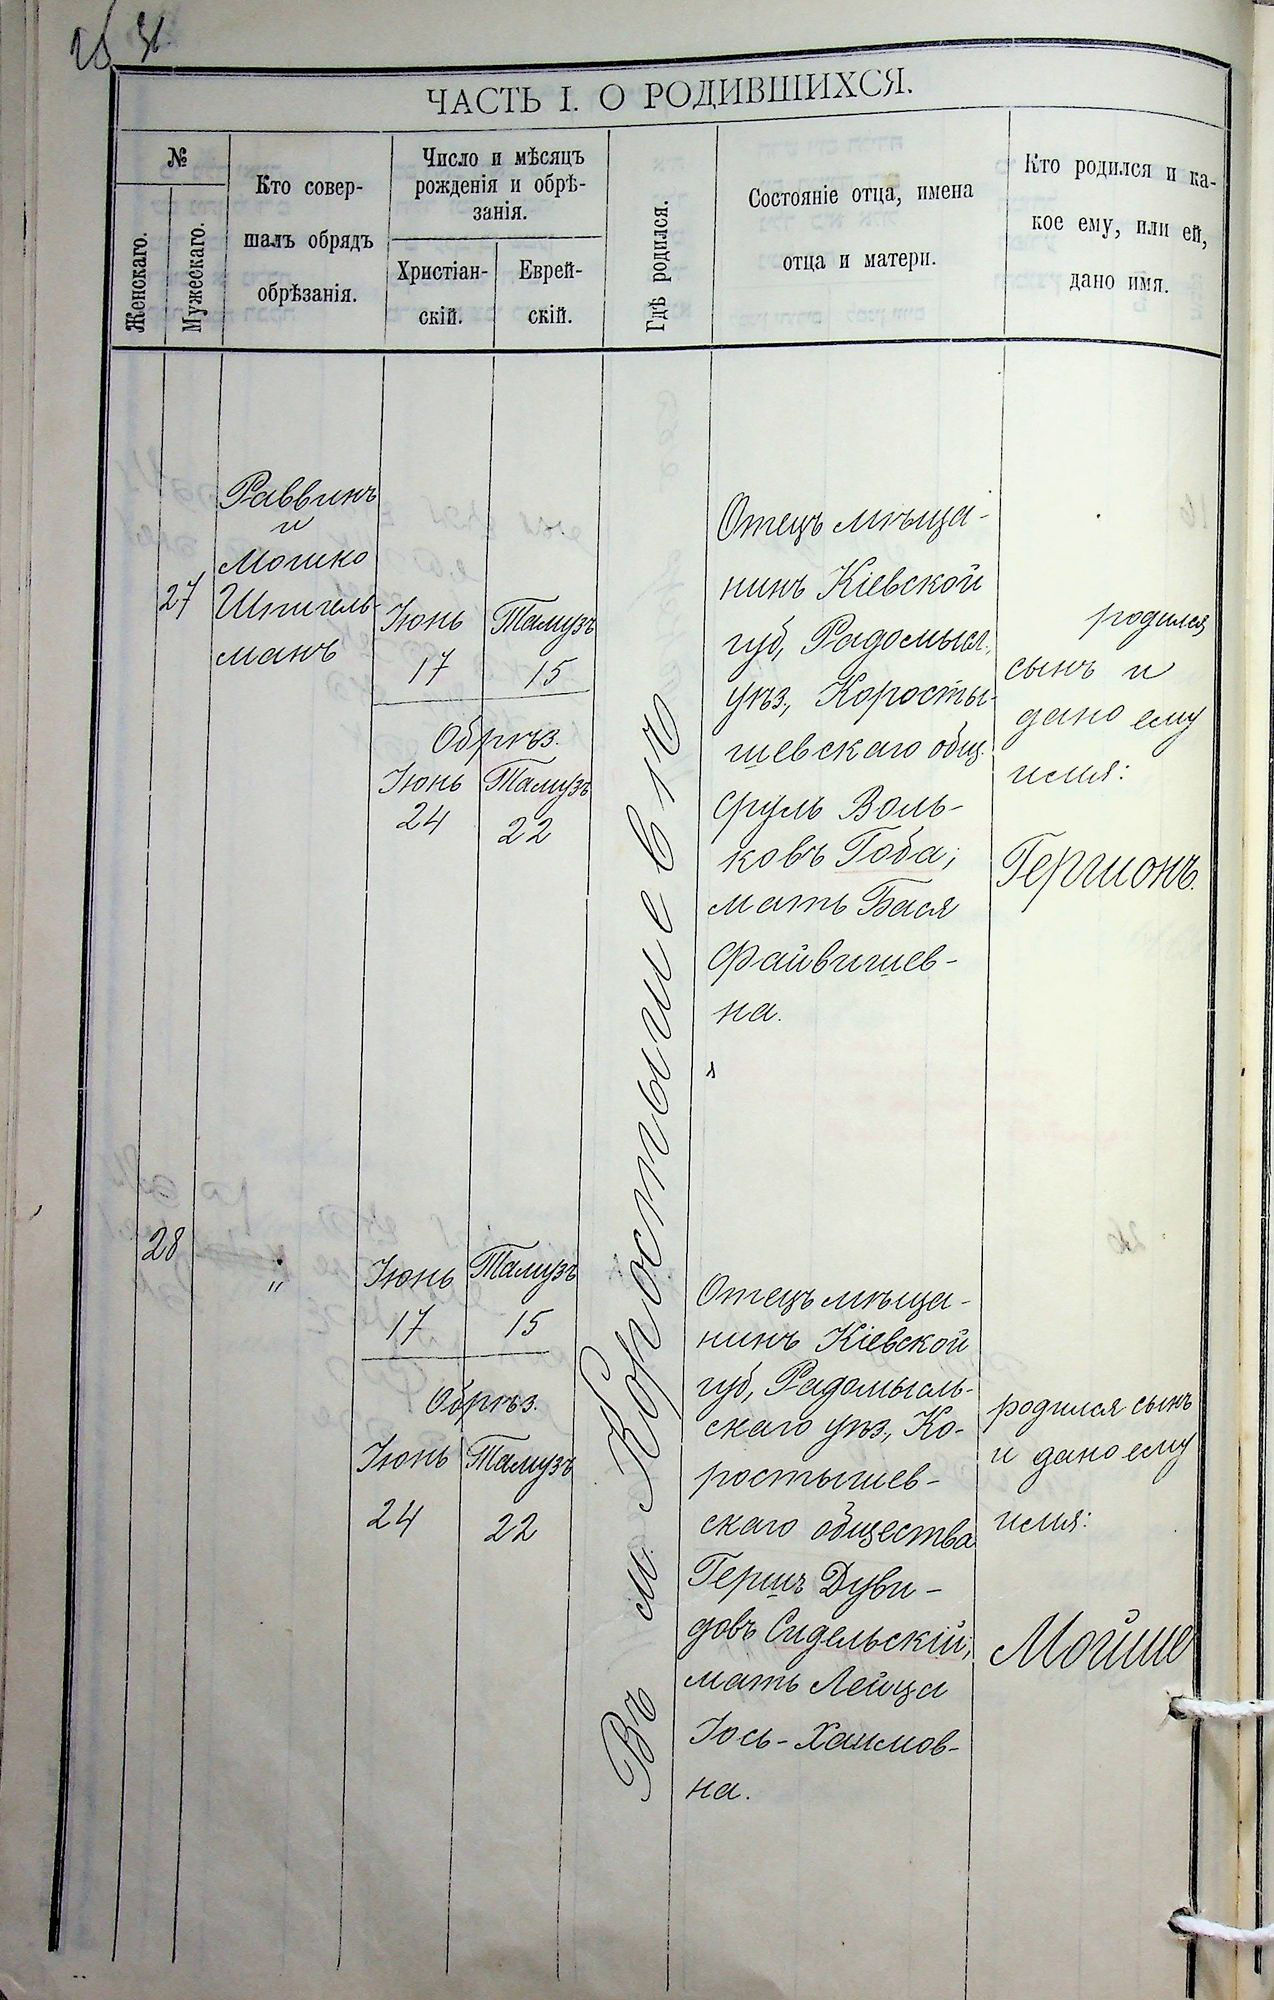 31.
ЧАСТЬ I. О РОДИВШИХСЯ.
№
Женскаго.
Мужескаго.
Кто совер-
шалъ обрядъ
обрѣзанія.
Число и мѣсяцъ
рожденія и обрѣ-
занія.
Христіан-
скій.
Еврей-
скій.
Гдѣ родился.
Состояніе отца, имена
отца и матери.
Кто родился и ка-
кое ему, или ей,
дано имя.
27
Раввинъ
и
Мошко
Шпигель-
манъ
Іюнь
17
Тамузъ
15
Обрѣз.
Іюнь
24
Тамузъ
22
Въ м. Коростышевѣ
Отецъ мѣща-
нинъ Кіевской
губ., Радомысл.,
уѣз., Коросты-
шевскаго общ.
Сруль Воль-
ковъ Гоба;
мать Бася
Файвишев-
на.
родился
сынъ и
дано ему
имя:
Гершонъ.
28
"
Іюнь
17
Тамузъ
15
Обрѣз.
Іюнь
24
Тамузъ
22
Отецъ мѣща-
нинъ Кіевской
губ., Радомысль-
скаго уѣз., Ко-
ростышев-
скаго общества
Гершъ Дуви-
довъ Сидельскій;
мать Лейца
Іось-Хаимов-
на.
родился сынъ
и дано ему
имя:
Мойше